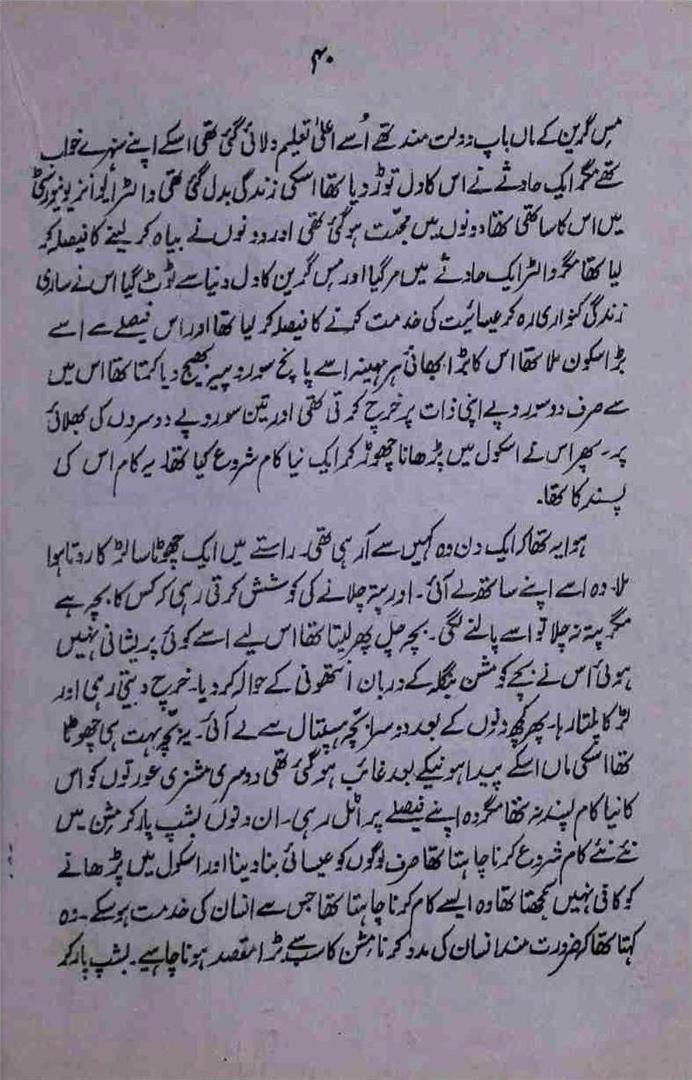 ۴۰
مس گرین کے ماں باپ دولت مند تھے اُسے اعلیٰ تعلیم دلائی گئی تھی اسکے اپنے سنہرے خواب
تھے مگر ایک حادثے نے اس کا دل توڑ دیا تھا اسکی زندگی بدل گئی تھی والٹر ایوانز یونیورسٹی
میں اس کا ساتھی تھا دونوں میں محبّت ہو گئی تھی اور دونوں نے بیاہ کر لینے کا فیصلہ کر
لیا تھا مگر والٹر ایک حادثے میں مر گیا اور مس گرین کا دل دنیا سے ٹوٹ گیا اس نے ساری
زندگی کنواری رہ کر عیسائیت کی خدمت کرنے کا فیصلہ کر لیا تھا اور اس فیصلے سے اسے
بڑا سکون ملا تھا اس کا بڑا بھائی ہر مہینہ اسے پانچ سو روپیہ بھیج دیا کرتا تھا اس میں
سے صرف دو سو روپے اپنی ذات پر خرچ کرتی تھی اور تین سو روپے دوسروں کی بھلائی
پر۔ پھر اس نے اسکول میں پڑھانا چھوڑ کر ایک نیا کام شروع کیا تھا۔ یہ کام اس کی
پسند کا تھا۔
ہوا یہ تھا کہ ایک دن وہ کہیں سے آ رہی تھی۔ راستے میں ایک چھوٹا سا لڑکا روتا ہوا
ملا۔ وہ اسے اپنے ساتھ لے آئی۔ اور پتہ چلانے کی کوشش کرتی رہی کہ کس کا بچہ ہے
مگر پتہ نہ چلا تو اسے پالنے لگی۔ بچہ چل پھر لیتا تھا اس لیے اسے کوئی پریشانی نہیں
ہوئی اس نے بچے کو مشن بنگلہ کے دربان انتھونی کے حوالہ کر دیا۔ خرچ دیتی رہی اور
لڑکا پلتا رہا۔ پھر کچھ دنوں کے بعد دوسرا بچہ ہسپتال سے لے آئی۔ یہ بچّہ بہت ہی چھوٹا
تھا اسکی ماں اسکے پیدا ہونیکے بعد غائب ہو گئی تھی دوسری مشنری عورتوں کو اس
کا نیا کام پسند نہ تھا مگر وہ اپنے فیصلے پر اٹل رہی۔ ان دنوں بشپ پارکر مشن میں
نئے نئے کام شروع کرنا چاہتا تھا صرف لوگوں کو عیسائی بنا دینا اور اسکول میں پڑھانے
کو کافی نہیں سمجھتا تھا وہ ایسے کام کرنا چاہتا تھا جس سے انسان کی خدمت ہو سکے۔ وہ
کہتا تھا کہ ضرورت مند انسان کی مدد کرنا مشن کا سب سے بڑا مقصد ہونا چاہیے۔ بشپ پارکر